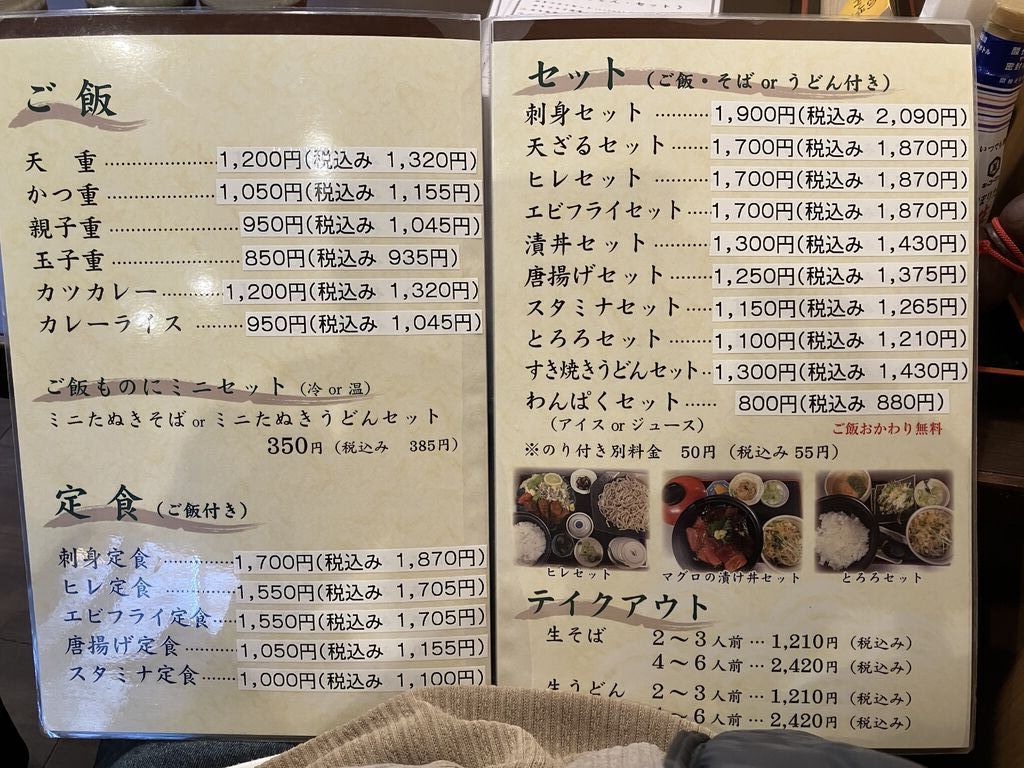 ご飯
天重 1,200円(税込み 1,320円)
かつ重 1,050円(税込み 1,155円)
親子重 950円(税込み 1,045円)
玉子重 850円(税込み 935円)
カツカレー 1,200円(税込み 1,320円)
カレーライス 950円(税込み 1,045円)
ご飯ものにミニセット(冷 or 温)
ミニたぬきそば or ミニたぬきうどんセット
350円(税込み 385円)
定食(ご飯付き)
刺身定食 1,700円(税込み 1,870円)
ヒレ定食 1,550円(税込み 1,705円)
エビフライ定食 1,550円(税込み 1,705円)
唐揚げ定食 1,050円(税込み 1,155円)
スタミナ定食 1,000円(税込み 1,100円)
セット(ご飯・そば or うどん付き)
刺身セット 1,900円(税込み 2,090円)
天ざるセット 1,700円(税込み 1,870円)
ヒレセット 1,700円(税込み 1,870円)
エビフライセット 1,700円(税込み 1,870円)
漬丼セット 1,300円(税込み 1,430円)
唐揚げセット 1,250円(税込み 1,375円)
スタミナセット 1,150円(税込み 1,265円)
とろろセット 1,100円(税込み 1,210円)
すき焼きうどんセット 1,300円(税込み 1,430円)
わんぱくセット 800円(税込み 880円)
(アイス or ジュース) ご飯おかわり無料
※のり付き別料金 50円(税込み 55円)
ヒレセット マグロの漬け丼セット とろろセット
テイクアウト
生そば 2〜3人前…1,210円(税込み)
4〜6人前…2,420円(税込み)
生うどん 2〜3人前…1,210円(税込み)
6人前…2,420円(税込み)